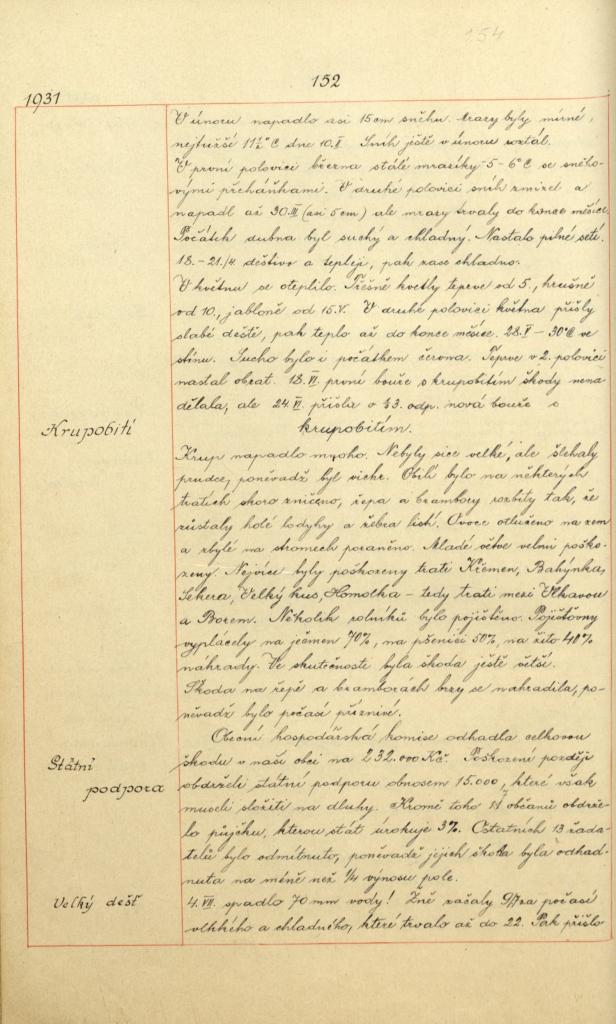 154
152
1931
V únoru napadlo asi 15 cm sněhu. Mrazy byly mírné,
nejtužší 11½° C dne 10.II. Sníh ještě v únoru roztál.
V první polovici března stálé mrazíky -5 - 6° C se sněho-
vými přeháňkami. V druhé polovici sníh zmizel a
napadl až 30.III (asi 5 cm) ale mrazy trvaly do konce měsíce.
Počátek dubna byl suchý a chladný. Nastalo pilné setí.
18.-21./4. deštivo a tepleji, pak zase chladno.
V květnu se oteplilo. Třešně kvetly teprve od 5., hrušně
od 10., jabloně od 15.V. V druhé polovici května přišly
slabé deště, pak teplo až do konce měsíce. 28.V - 30°C ve
stínu. Sucho bylo i počátkem června. Teprve v 2. polovici
nastal obrat. 18.VI. první bouře s krupobitím škody nena-
dělala, ale 24.VI. přišla o ½3. odp. nová bouře s
Krupobití
krupobitím.
Krup napadlo mnoho. Nebyly sice velké, ale šlehaly
prudce, poněvadž byl vichr. Obilí bylo na některých
tratích skoro zničeno, řepa a brambory rozbity tak, že
zůstaly holé lodyhy a žebra listí. Ovoce otlučeno na zem
a zbylé na stromech poraněno. Mladé větve velmi poško-
zeny. Nejvíce byly poškozeny trati Křemen, Bahýnka,
Sekera, Velký kus, Homolka - tedy trati mezi Vlkavou
a Borem. Několik rolníků bylo pojištěno. Pojišťovny
vyplácely na ječmen 70%, na pšenici 50%, na žito 40%
náhrady. Ve skutečnosti byla škoda ještě větší.
Škoda na řepě a bramborách brzy se nahradila, po-
něvadž bylo počasí příznivé.
Obecní hospodářská komise odhadla celkovou
Státní
podpora
škodu v naší obci na 232.000 Kč. Poškození později
obdrželi státní podporu obnosem 15.000, které však
museli složiti na dluhy. Kromě toho 11 občanů obdrže-
lo půjčku, kterou stát úrokuje 3%. Ostatních 13 žada-
telů bylo odmítnuto, poněvadž jejich škoda byla odhad-
nuta na méně než ¼ výnosu pole.
Velký déšť
4.VII. spadlo 70 mm vody! Žně začaly za počasí
vlhkého a chladného, které trvalo až do 22. Pak přišlo